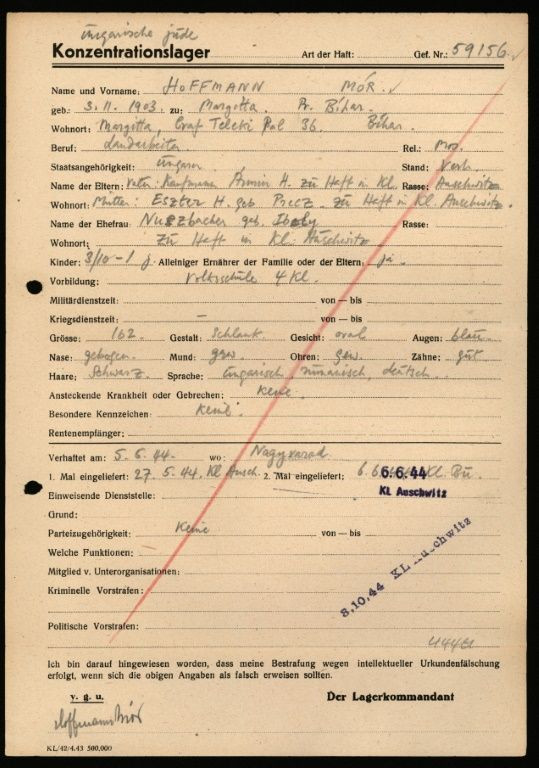 ungarische Jude
Konzentrationslager Art der Haft: Gef. Nr.: 59156
Name und Vorname: HOFFMANN MÓR.
geb.: 3. II. 1903. zu: Margitta. Pr. Bihar.
Wohnort: Margitta, Graf Teleki Pal 36. Bihar.
Beruf: Landarbeiter Rel.: Mos.
Staatsangehörigkeit: Ungarn Stand: Verh.
Name der Eltern: Vater: Kaufmann Armin H. zu Haft in KL. Rasse: Auschwitz
Wohnort: Mutter: Eszter H. geb. zu Haft in KL. Auschwitz.
Name der Ehefrau: geb. Rasse:
Wohnort: zu Haft in KL. Auschwitz
Kinder: 3/10-1 J. Alleiniger Ernährer der Familie oder der Eltern: ja.
Vorbildung: Volksschule 4 Kl.
Militärdienstzeit: von — bis
Kriegsdienstzeit: — von — bis
Grösse: 162. Gestalt: Schlank. Gesicht: oval Augen: blau
Nase: gebogen. Mund: gew. Ohren: gew. Zähne: gut
Haare: Schwarz. Sprache: Ungarisch, rumänisch, deutsch.
Ansteckende Krankheit oder Gebrechen: keine.
Besondere Kennzeichen: keine.
Rentenempfänger:
Verhaftet am: 5. 6. 44. wo: Nagyvarad.
1. Mal eingeliefert: 27. 5. 44. KL Ausch. 2. Mal eingeliefert: 6.6.44 KL. Bu.
6.6.44
KL Auschwitz
Einweisende Dienststelle:
Grund:
Parteizugehörigkeit: Keine von — bis
Welche Funktionen:
Mitglied v. Unterorganisationen:
Kriminelle Vorstrafen:
8.10.44 KL Auschwitz
Politische Vorstrafen:
Ich bin darauf hingewiesen worden, dass meine Bestrafung wegen intellektueller Urkundenfälschung
erfolgt, wenn sich die obigen Angaben als falsch erweisen sollten.
v. g. u. Der Lagerkommandant
Hoffmann Mór
KL/42/4.43 500,000